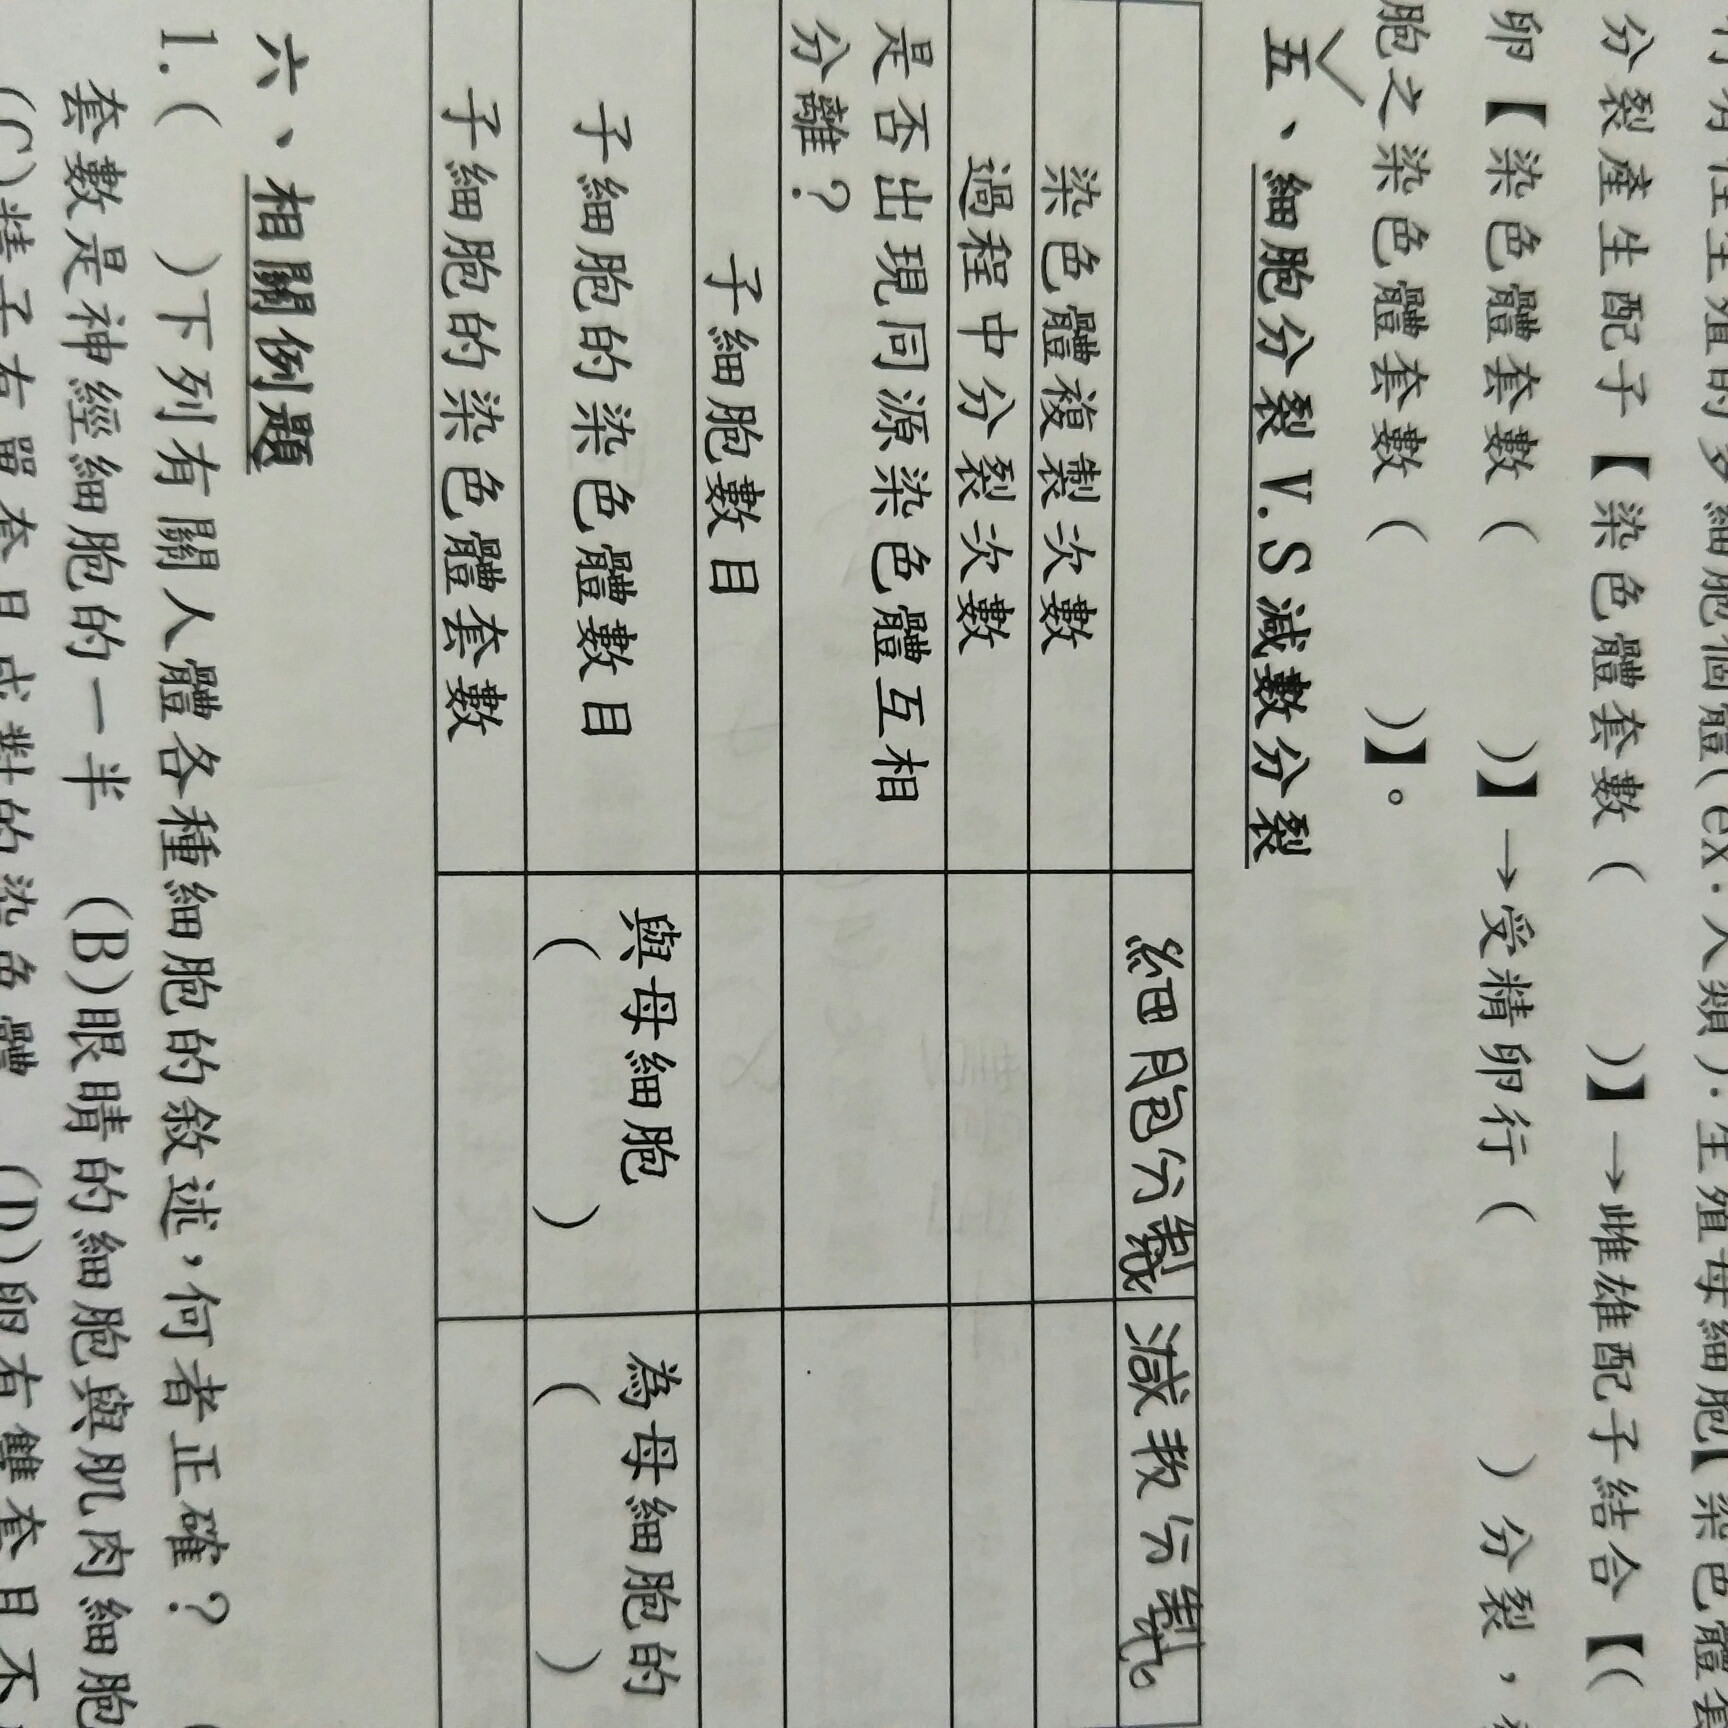 行有性生殖的多細胞個體(ex.人類):生殖母細胞【染色體套
分裂產生配子【染色體套數(　　)】→雌雄配子結合【(
卵【染色體套數(　　)】→受精卵行(　　)分裂，
胞之染色體套數(　　)】。
五、細胞分裂 V.S 減數分裂
細胞分裂 減数分裂
染色體複製次數
過程中分裂次數
是否出現同源染色體互相
分離？
子細胞數目
子細胞的染色體數目 與母細胞 為母細胞的
(　　) (　　)
子細胞的染色體套數
六、相關例題
1.(　　)下列有關人體各種細胞的敘述，何者正確？ (
套數是神經細胞的一半 (B)眼睛的細胞與肌肉細胞
(C)精子有單套且成對的染色體 (D)卵有雙套且不